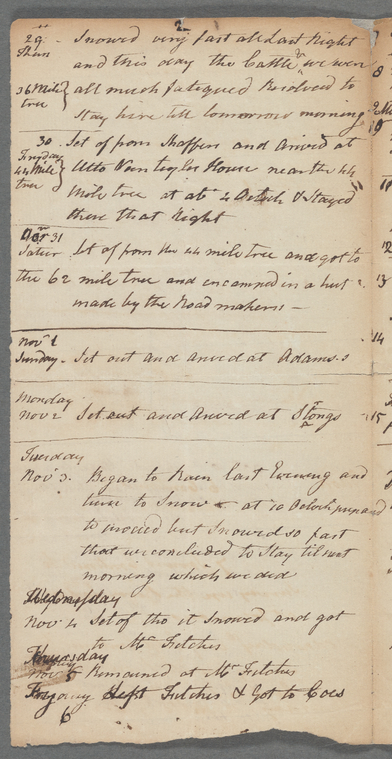 2
29. Snowed very fast all Last Night
Thurs and this day the Cattle & we were
36 Mile all much fatigued Resolved to
tree Stay hire till tomorrow morning
30 Set of from Shaffers and arived at
Fryday Otto Van House near the 44
44 Mile mile tree at abt 4 Oclock & Stayed
tree there that Night
31
Satter Set of from the 44 mile tree and got to
the 62 mile tree and encamped in a hut
made by the Road makers —
Novr 1
Sunday - Set out and arived at Adams.s
Monday
Nov 2 Set out and arived at Strongs
Tuesday
Nov 3. Began to Rain last Evening and
turn to Snow at 10 Oclock prepared
to proceed but Snowed so fast
that we concluded to Stay til next
morning which we did
Wednesday
Novr 4 Set of tho it Snowed and got
to Mr Fitches
Thursday
Nov 5 Remained at Mr Fitches
Fryday Left Fitches & Got to Coes
6
8
9
11
12
13
14
15